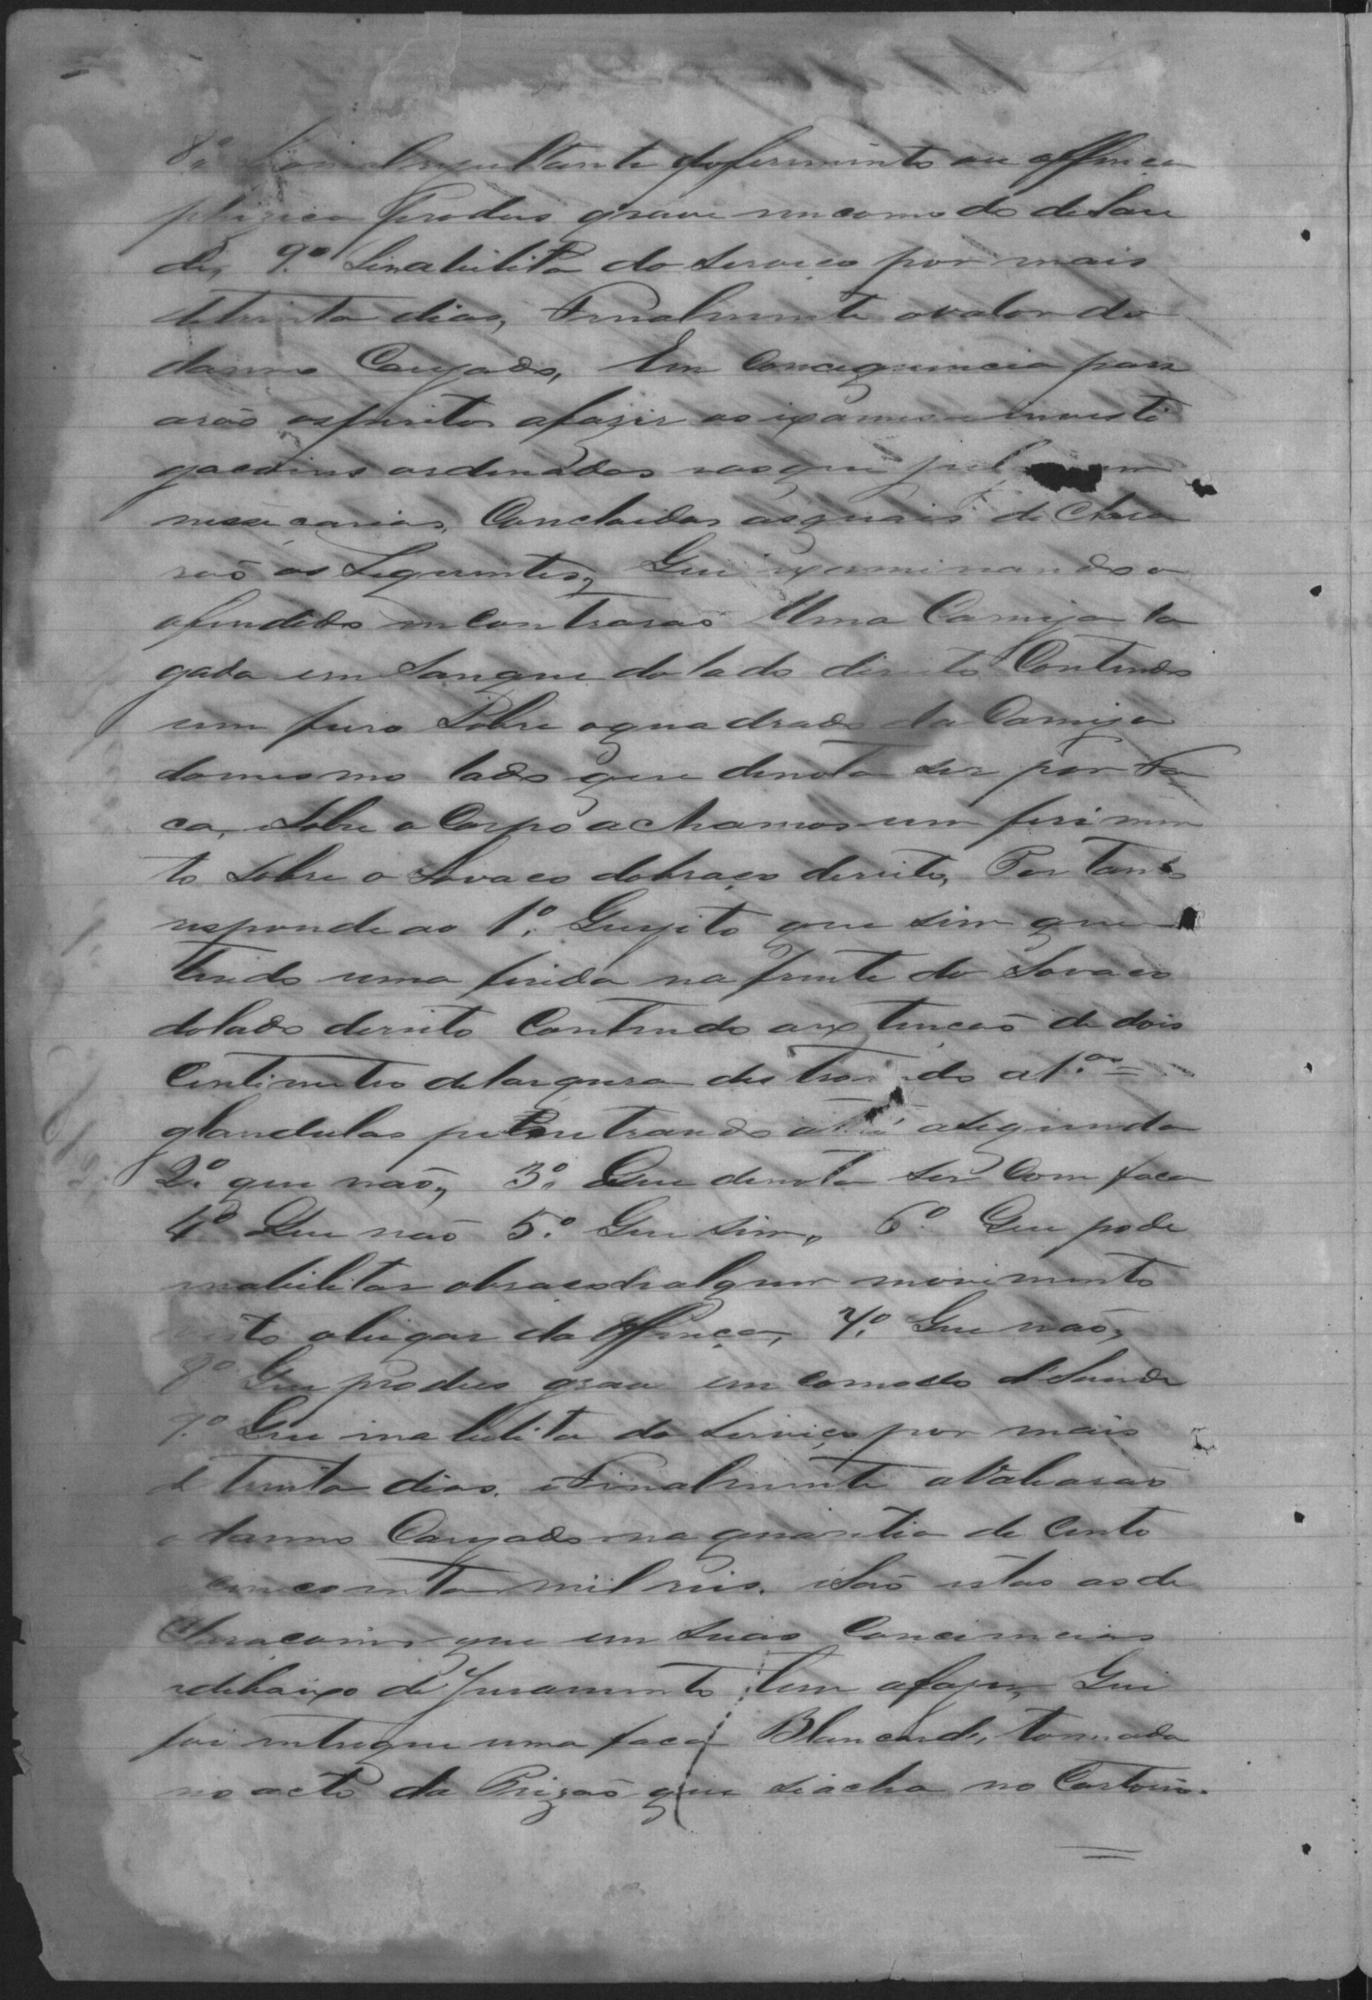 8º Se o mal resultante do ferimento ou offença
phizica produs grave incomodo de sau
de, 9.º Se inabilita do serviço por mais
de trinta dias, Finalmente o valor do
damno Cauzado, Em Concequencia pass
arão os peritos a fazer os ixames e investi
gacoins ordenadas e as que jul
nessecarias, Concluidas as quais declara
rão os Seguintes, Que ixaminando o
ofendido incontrarão Uma Camiza la
gada em Sangue do lado direito Contendo
um furo Sobre o quadrado da Camiza
do mesmo lado que denota ser por fa
ca, e Sobre o Corpo achamos um ferimen
to Sobre o Sovaco do braço dereito, Por tanto
responde ao 1º. Quezito que sim que
tendo uma ferida na frente do Sovaco
do lado dereito Contendo a extenção de dois
Centimetro de largura destroindo as 1.as =
glandulas penetrando athé a segunda
2.º que não, 3º. Que denota ser Com faca
4º Que não 5.º Que sim, 6º Que pode
inabilitar o braço de algum movimento
visto o lugar da offença, 7º. Que não,
8º Que produs grave incomodo de Saude
9.º Que inabilita do serviço por mais
de trinta dias. e Finalmente avaliarão
o damno Cauzado na quantia de Cento
e cincoenta mil reis. e São estas as de
claracoins que em suas Conciencias
e debaixo de Juramento tem a fazer, Que
foi intregue uma faca Blancarde, tomada
no acto da Prizão que se acha no Cartorio.